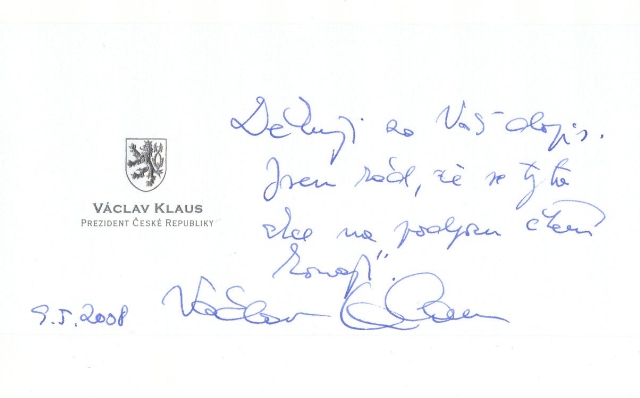 Děkuji za Váš dopis.
Jsem rád, že se tyto
akce na „podporu čtení
konají“.
VÁCLAV KLAUS
PREZIDENT ČESKÉ REPUBLIKY
9.5.2008
Václav Klaus